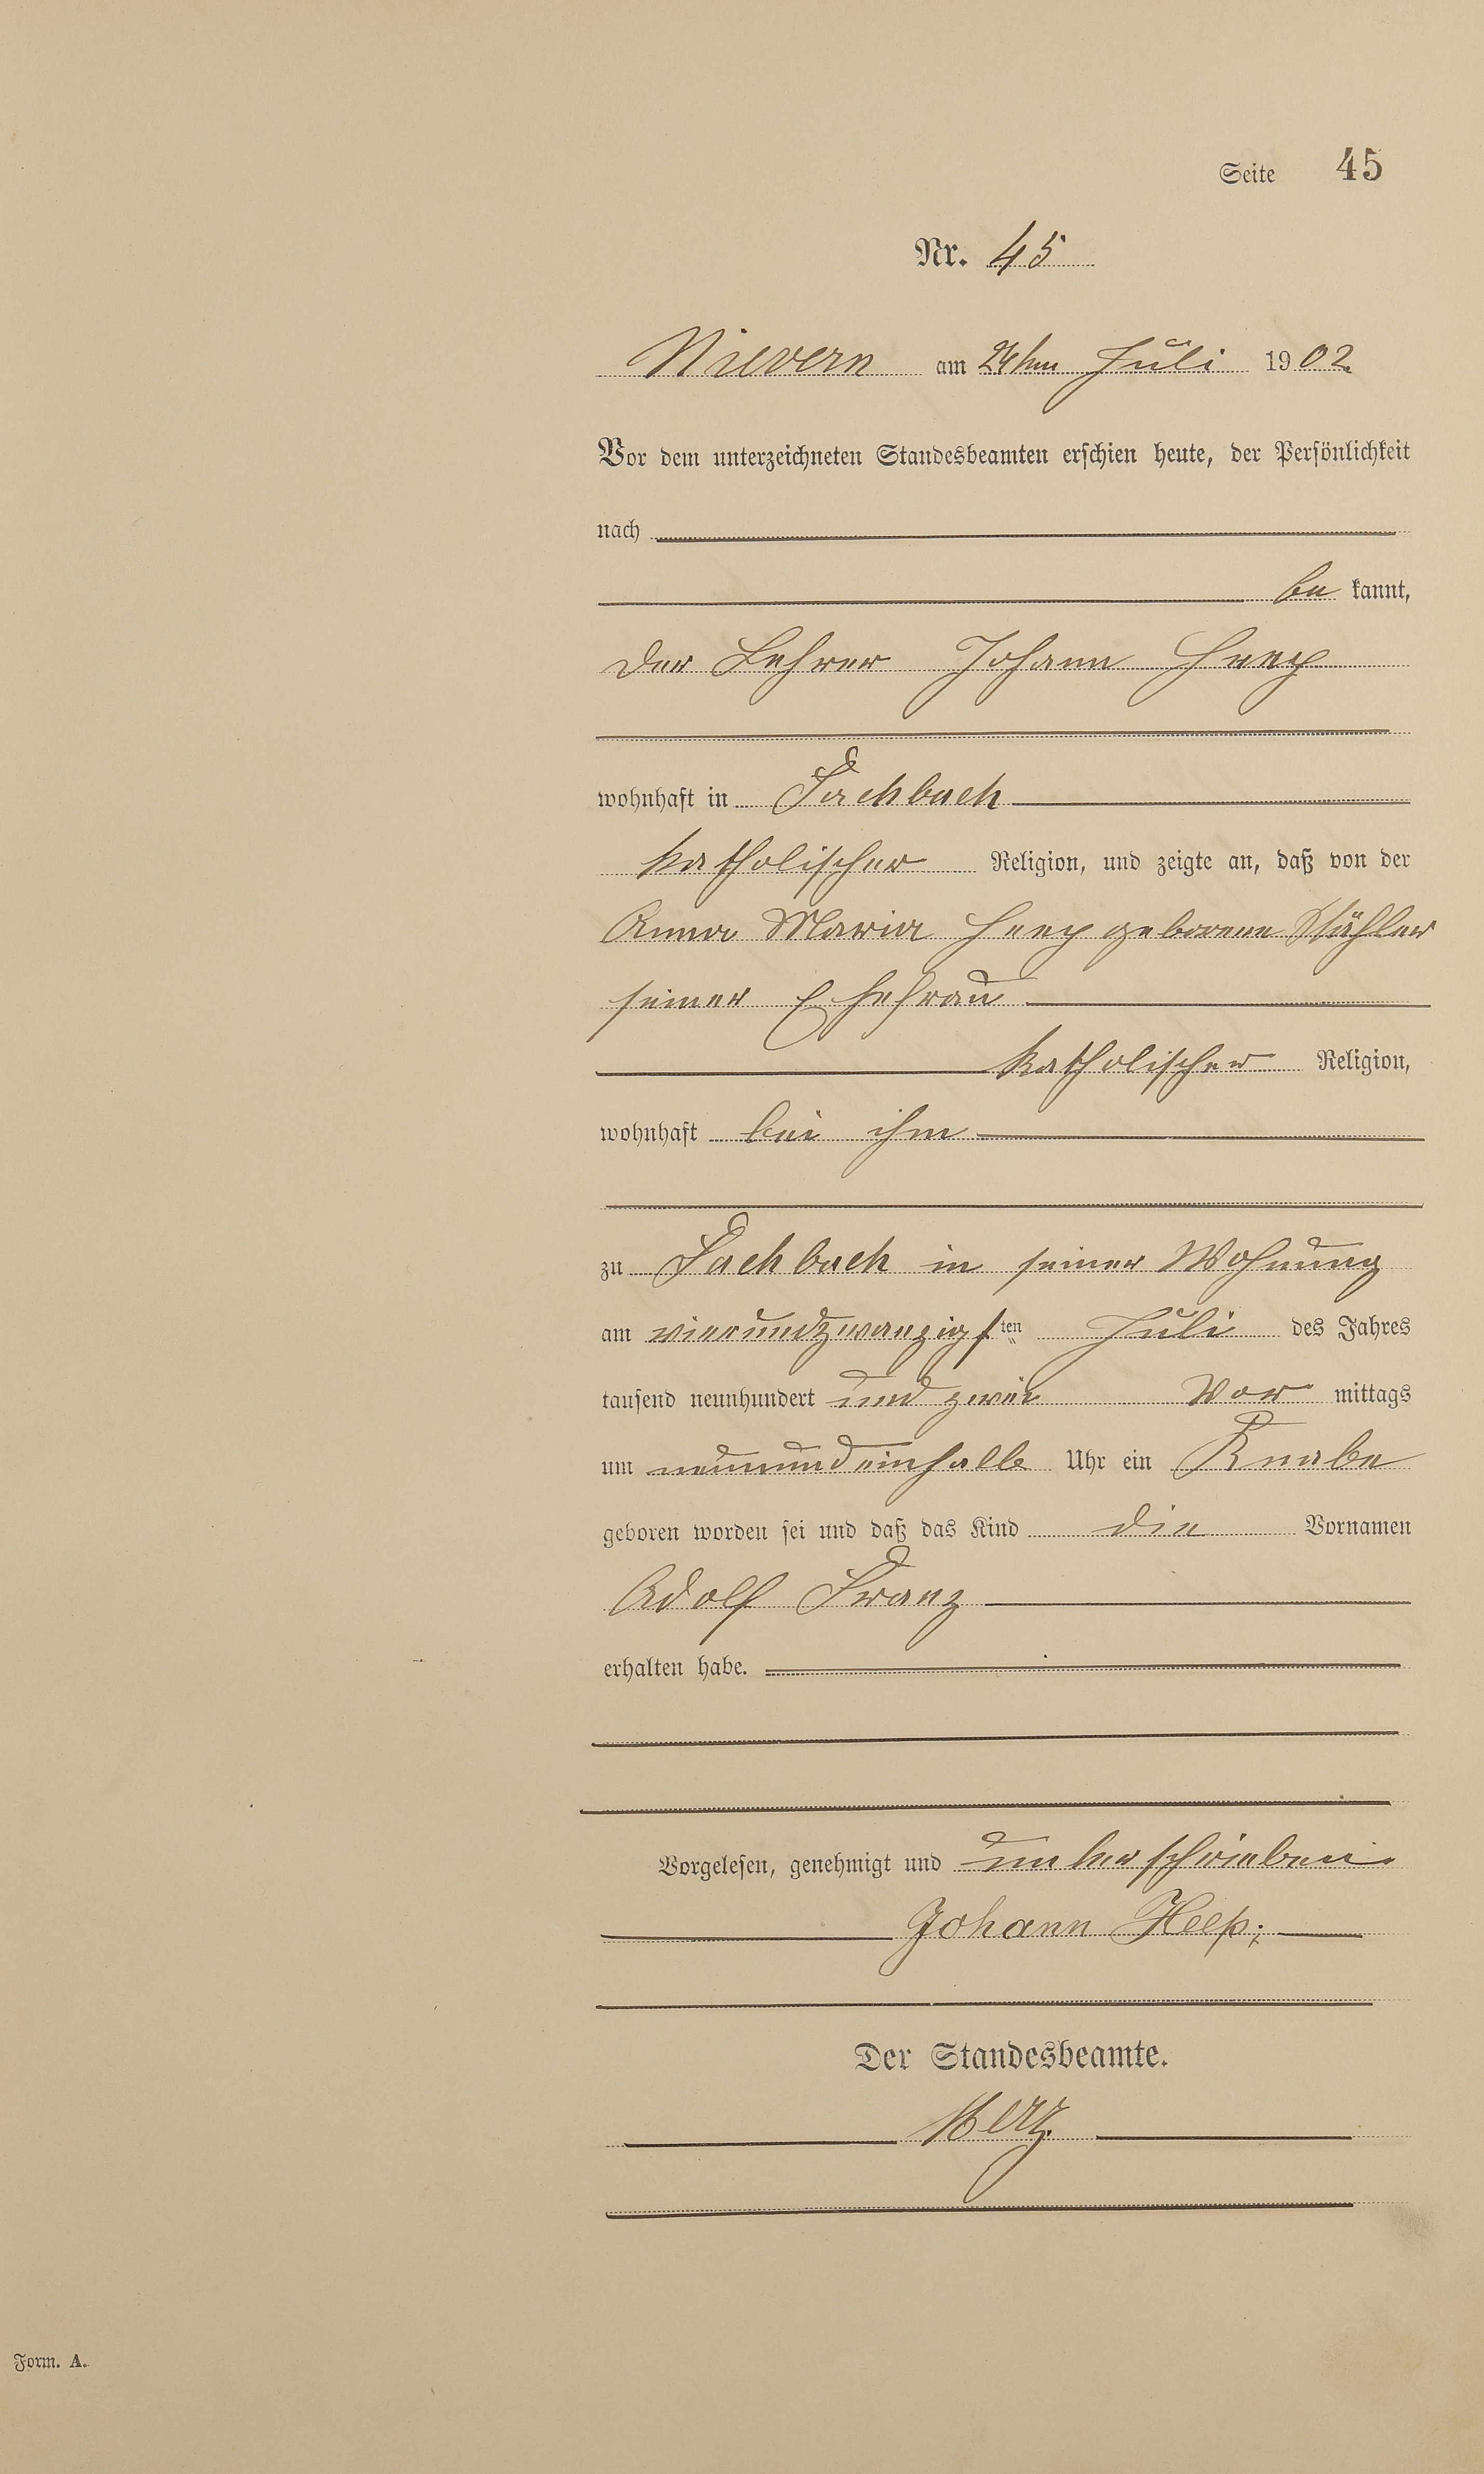 Seite 45
Nr. 45
Nievern am 24ten Juli 1902.
Vor dem unterzeichneten Standesbeamten erschien heute, der Persönlichkeit
nach
be kannt,
der Lehrer Johann Heep
wohnhaft in Fachbach
katholischer Religion, und zeigte an, daß von der
Anna Maria Heep geborene Stähler
seiner Ehefrau
katholischer Religion,
wohnhaft bei ihm
zu Fachbach in seiner Wohnung
am vierundzwanzigsten Juli des Jahres
tausend neunhundert und zwei Vor mittags
um neunundeinhalb Uhr ein Knabe
geboren worden sei und daß das Kind die Vornamen
Adolf Franz
erhalten habe.
Vorgelesen, genehmigt und unterschrieben.
Johann Heep.
Der Standesbeamte.
Herz.
Form. A.